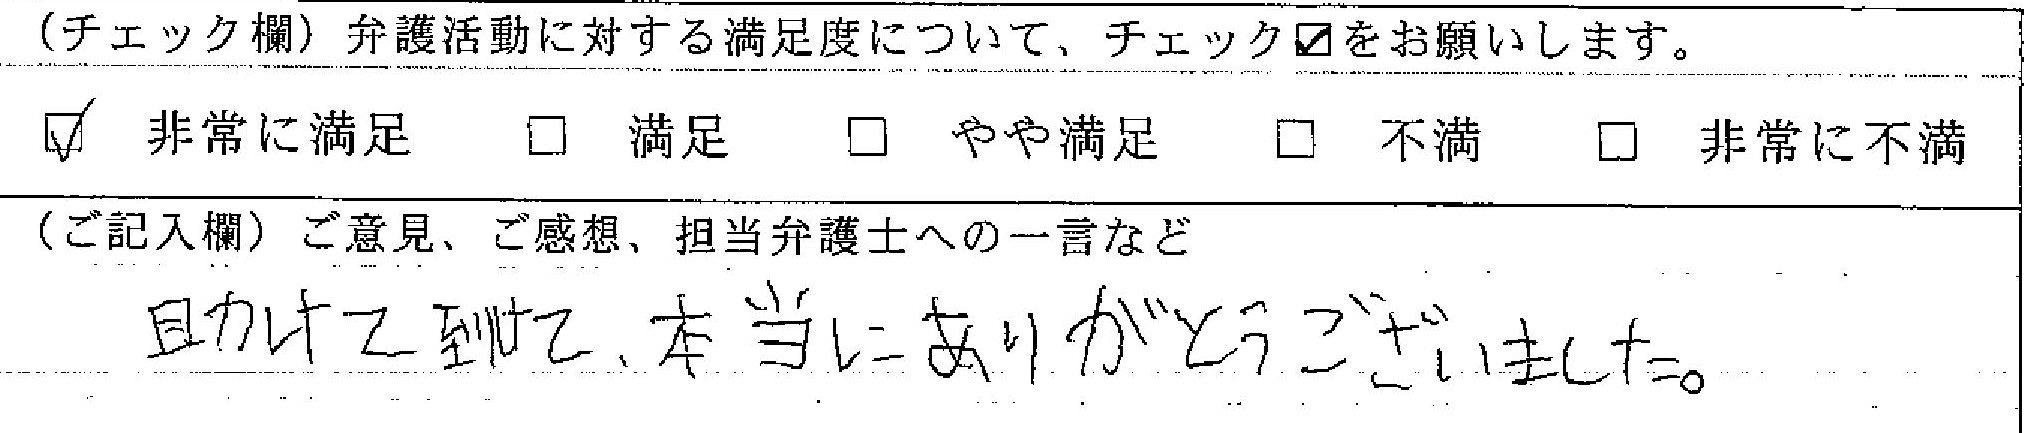 (チェック欄) 弁護活動に対する満足度について、チェック☑をお願いします。
☑ 非常に満足 □ 満足 □ やや満足 □ 不満 □ 非常に不満
(ご記入欄) ご意見、ご感想、担当弁護士への一言など
助けて到けて、本当にありがとうございました。